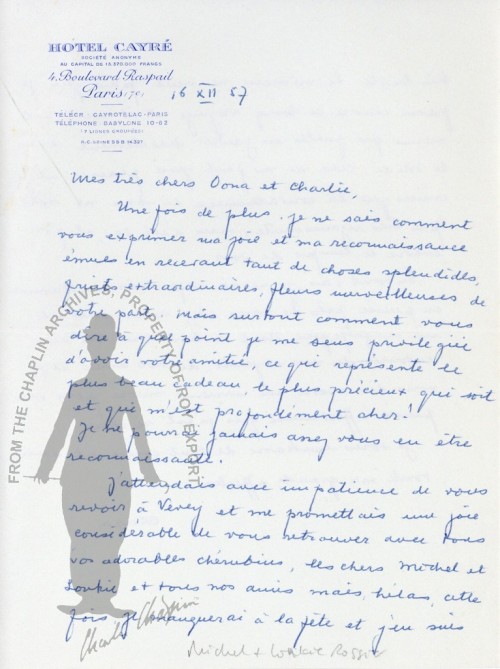 HOTEL CAYRÉ
SOCIÉTÉ ANONYME
AU CAPITAL DE 15.570.000 FRANCS
4, Boulevard Raspail
Paris (7e)
16 XII 57
TÉLÉGR. CAYROTELAC-PARIS
TÉLÉPHONE BABYLONE 10-63
(3 LIGNES GROUPÉES)
R.C. SEINE
Mes très chers Oona et Charlie,
Une fois de plus je ne sais comment
vous exprimer ma joie et ma reconnaissance
émues en recevant tant de choses splendides,
fruits extraordinaires, fleurs merveilleuses de
votre part, mais surtout comment vous
dire à quel point je me sens privilégiée
d'avoir votre amitié, ce qui représente le
plus beau cadeau, le plus précieux qui soit
et qui m'est profondément cher!
Je ne pourrai jamais assez vous en être
reconnaissante.
J'attendais avec impatience de vous
revoir à Vevey et me promettais une joie
considérable de vous retrouver avec tous
vos adorables chérubins, les chers Michel et
et tous nos amis mais, hélas, cette
fois je manquerai à la fête et j'en suis
FROM THE CHAPLIN ARCHIVES, PROPERTY OF ROY EXPORT
Charlie Chaplin
Michel +